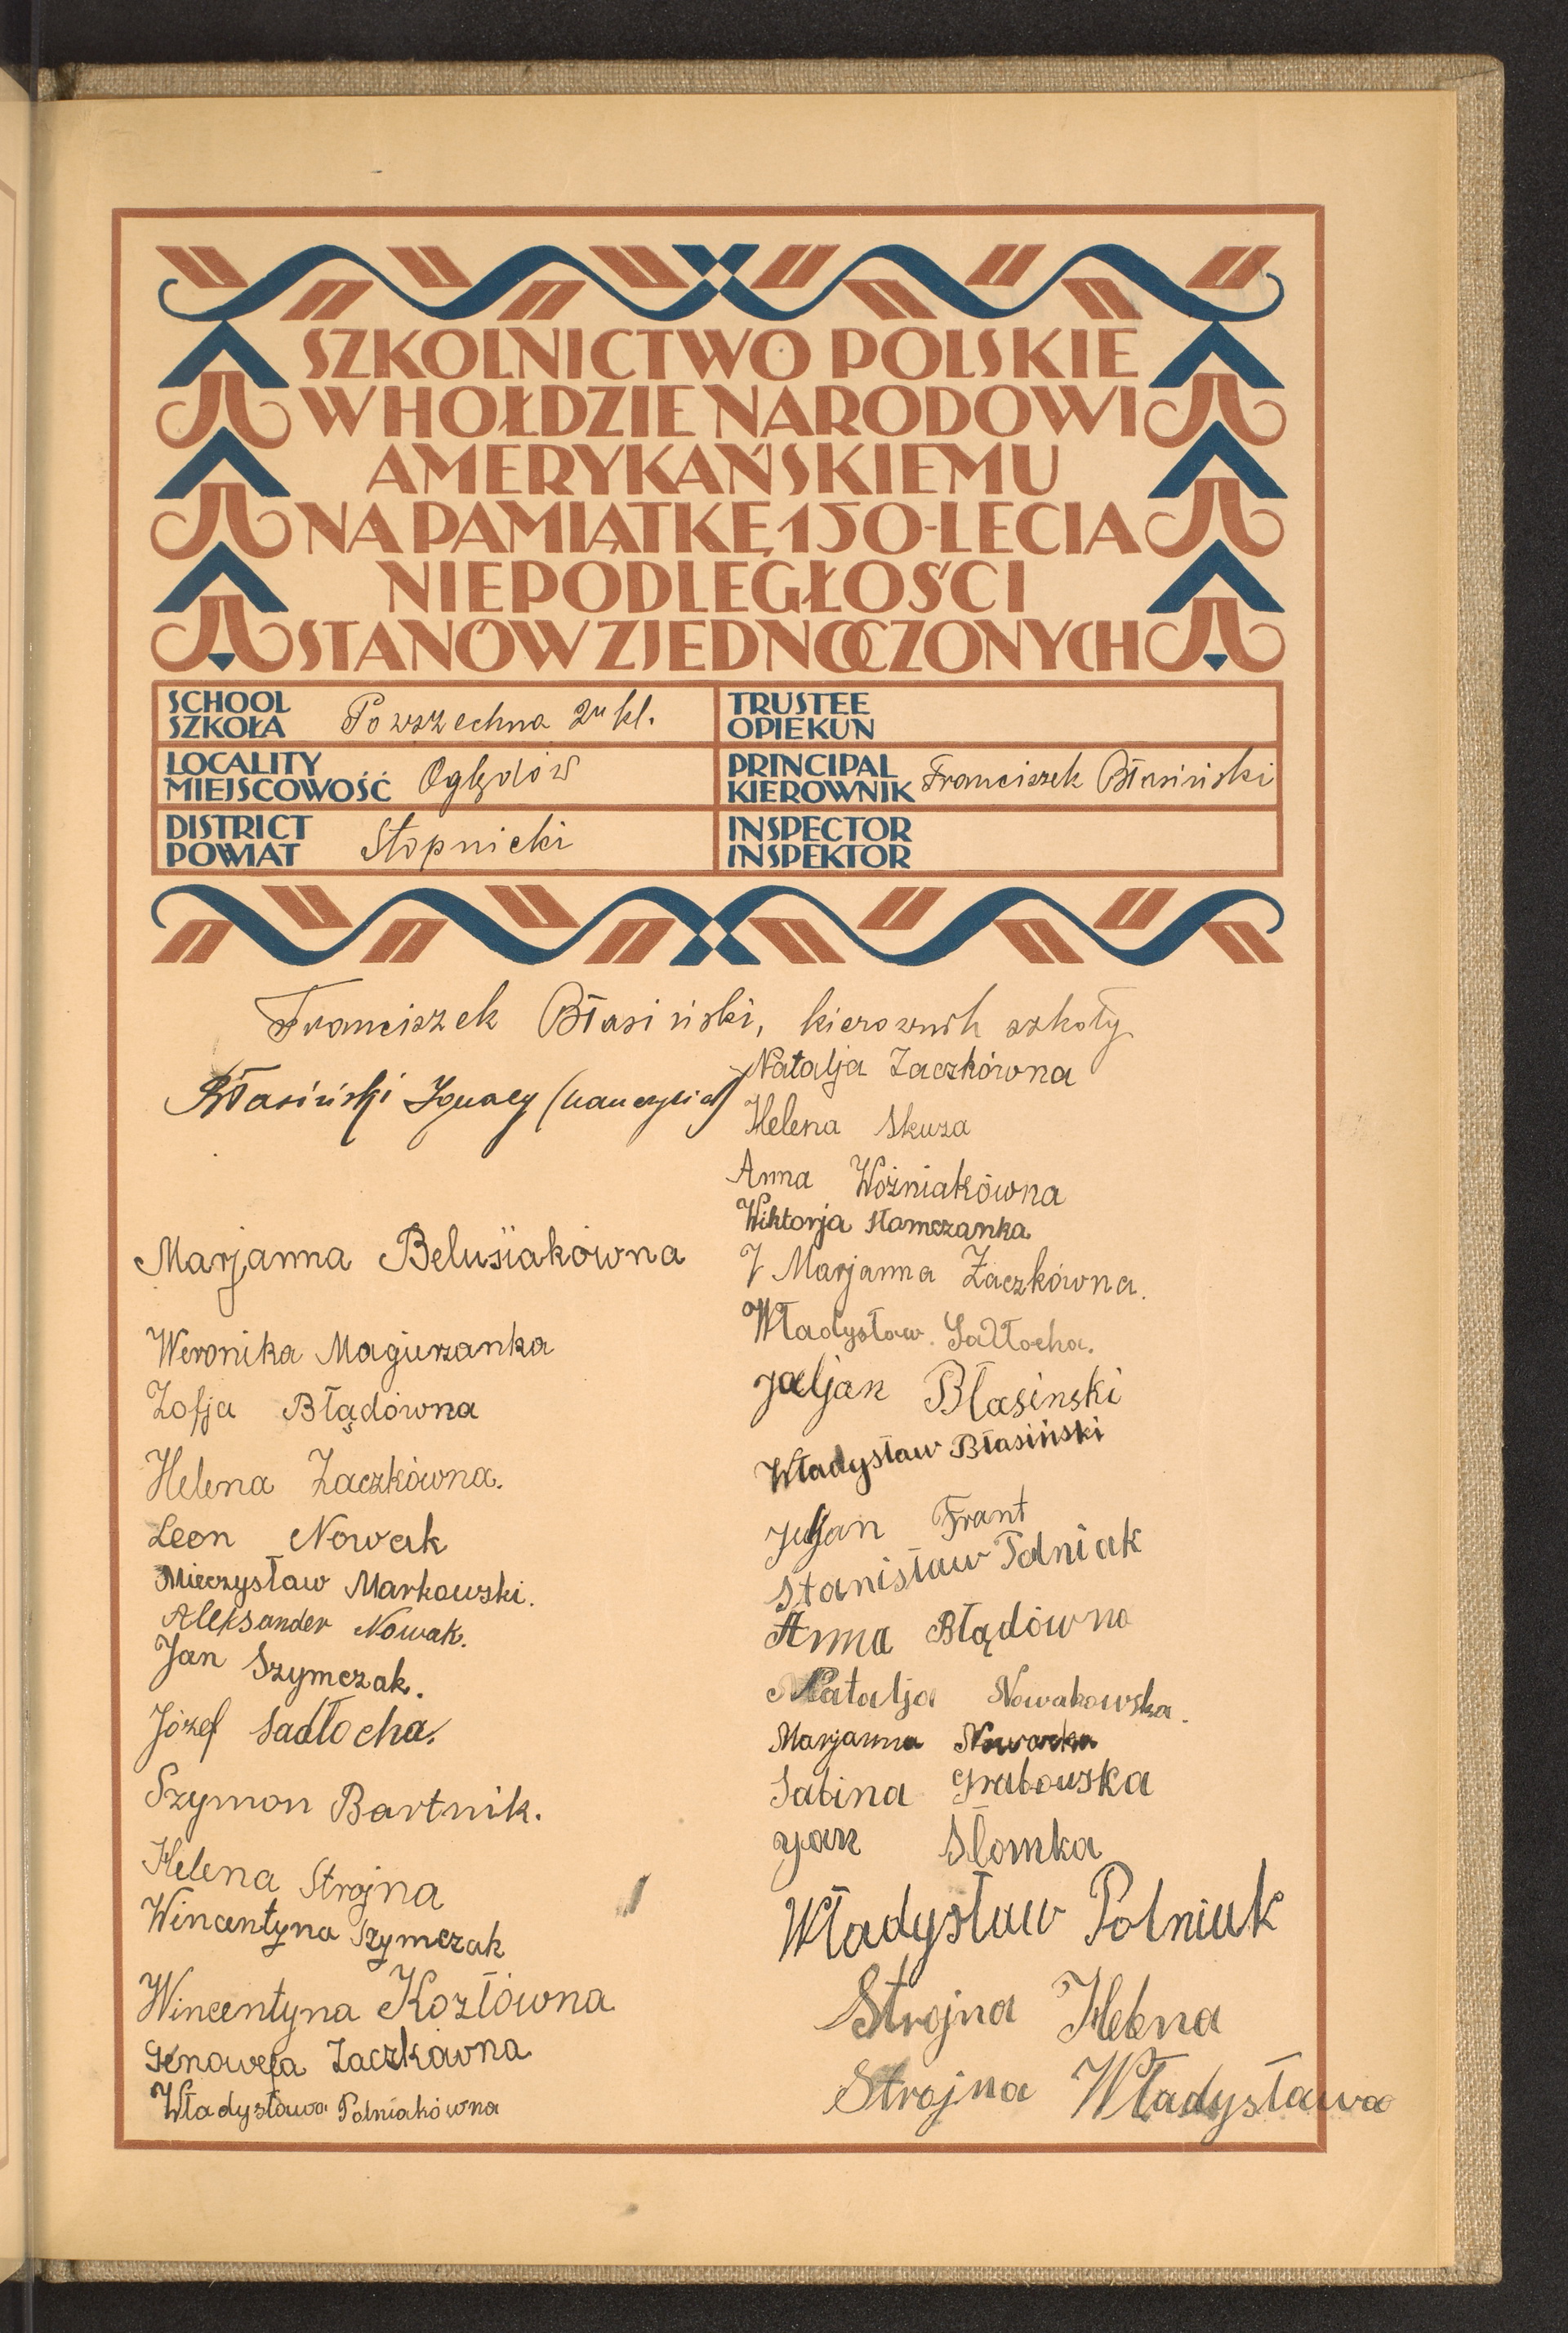 SZKOLNICTWO POLSKIE
W HOŁDZIE NARODOWI
AMERYKAŃSKIEMU
NA PAMIĄTKĘ 150-LECIA
NIEPODLEGŁOŚCI
STANÓW ZJEDNOCZONYCH
SCHOOL
SZKOŁA Powszechna 2u kl.
TRUSTEE
OPIEKUN
LOCALITY
MIEJSCOWOŚĆ Oględów
PRINCIPAL
KIEROWNIK Franciszek Błasiński
DISTRICT
POWIAT Stopnicki
INSPECTOR
INSPEKTOR
Franciszek Błasiński, kierownik szkoły
Błasiński Ignacy (nauczyciel)
Marjanna Belusiakówna
Weronika Magurzanka
Zofja Błądówna
Helena Zaczkówna.
Leon Nowak
Mieczysław Markowski.
Aleksander Nowak.
Jan Szymczak.
Józef Sadłocha.
Szymon Bartnik.
Helena Strojna
Wincentyna Szymczak
Wincentyna Kozłówna
Genowefa Zaczkówna
Władysława Polniakówna
Natalja Zaczkówna
Helena Skuza
Anna Woźniakówna
Wiktorja Słomczanka
Marjanna Zaczkówna.
Władysław Sadłocha.
Juljan Błasinski
Władysław Błasiński
Juljan Frant
Stanisław Polniak
Anna Błądówna
Natalja Nowakowska.
Marjanna Nowacka
Sabina Grabowska
Jan Słomka
Władysław Polniak
Strojna Helena
Strojna Władysława